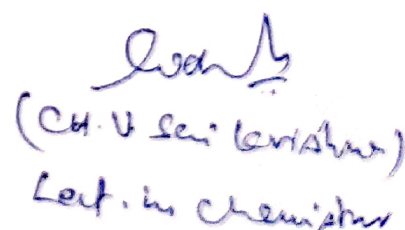 (CH. V. Sai Krishna)
Lect. in Chemistry